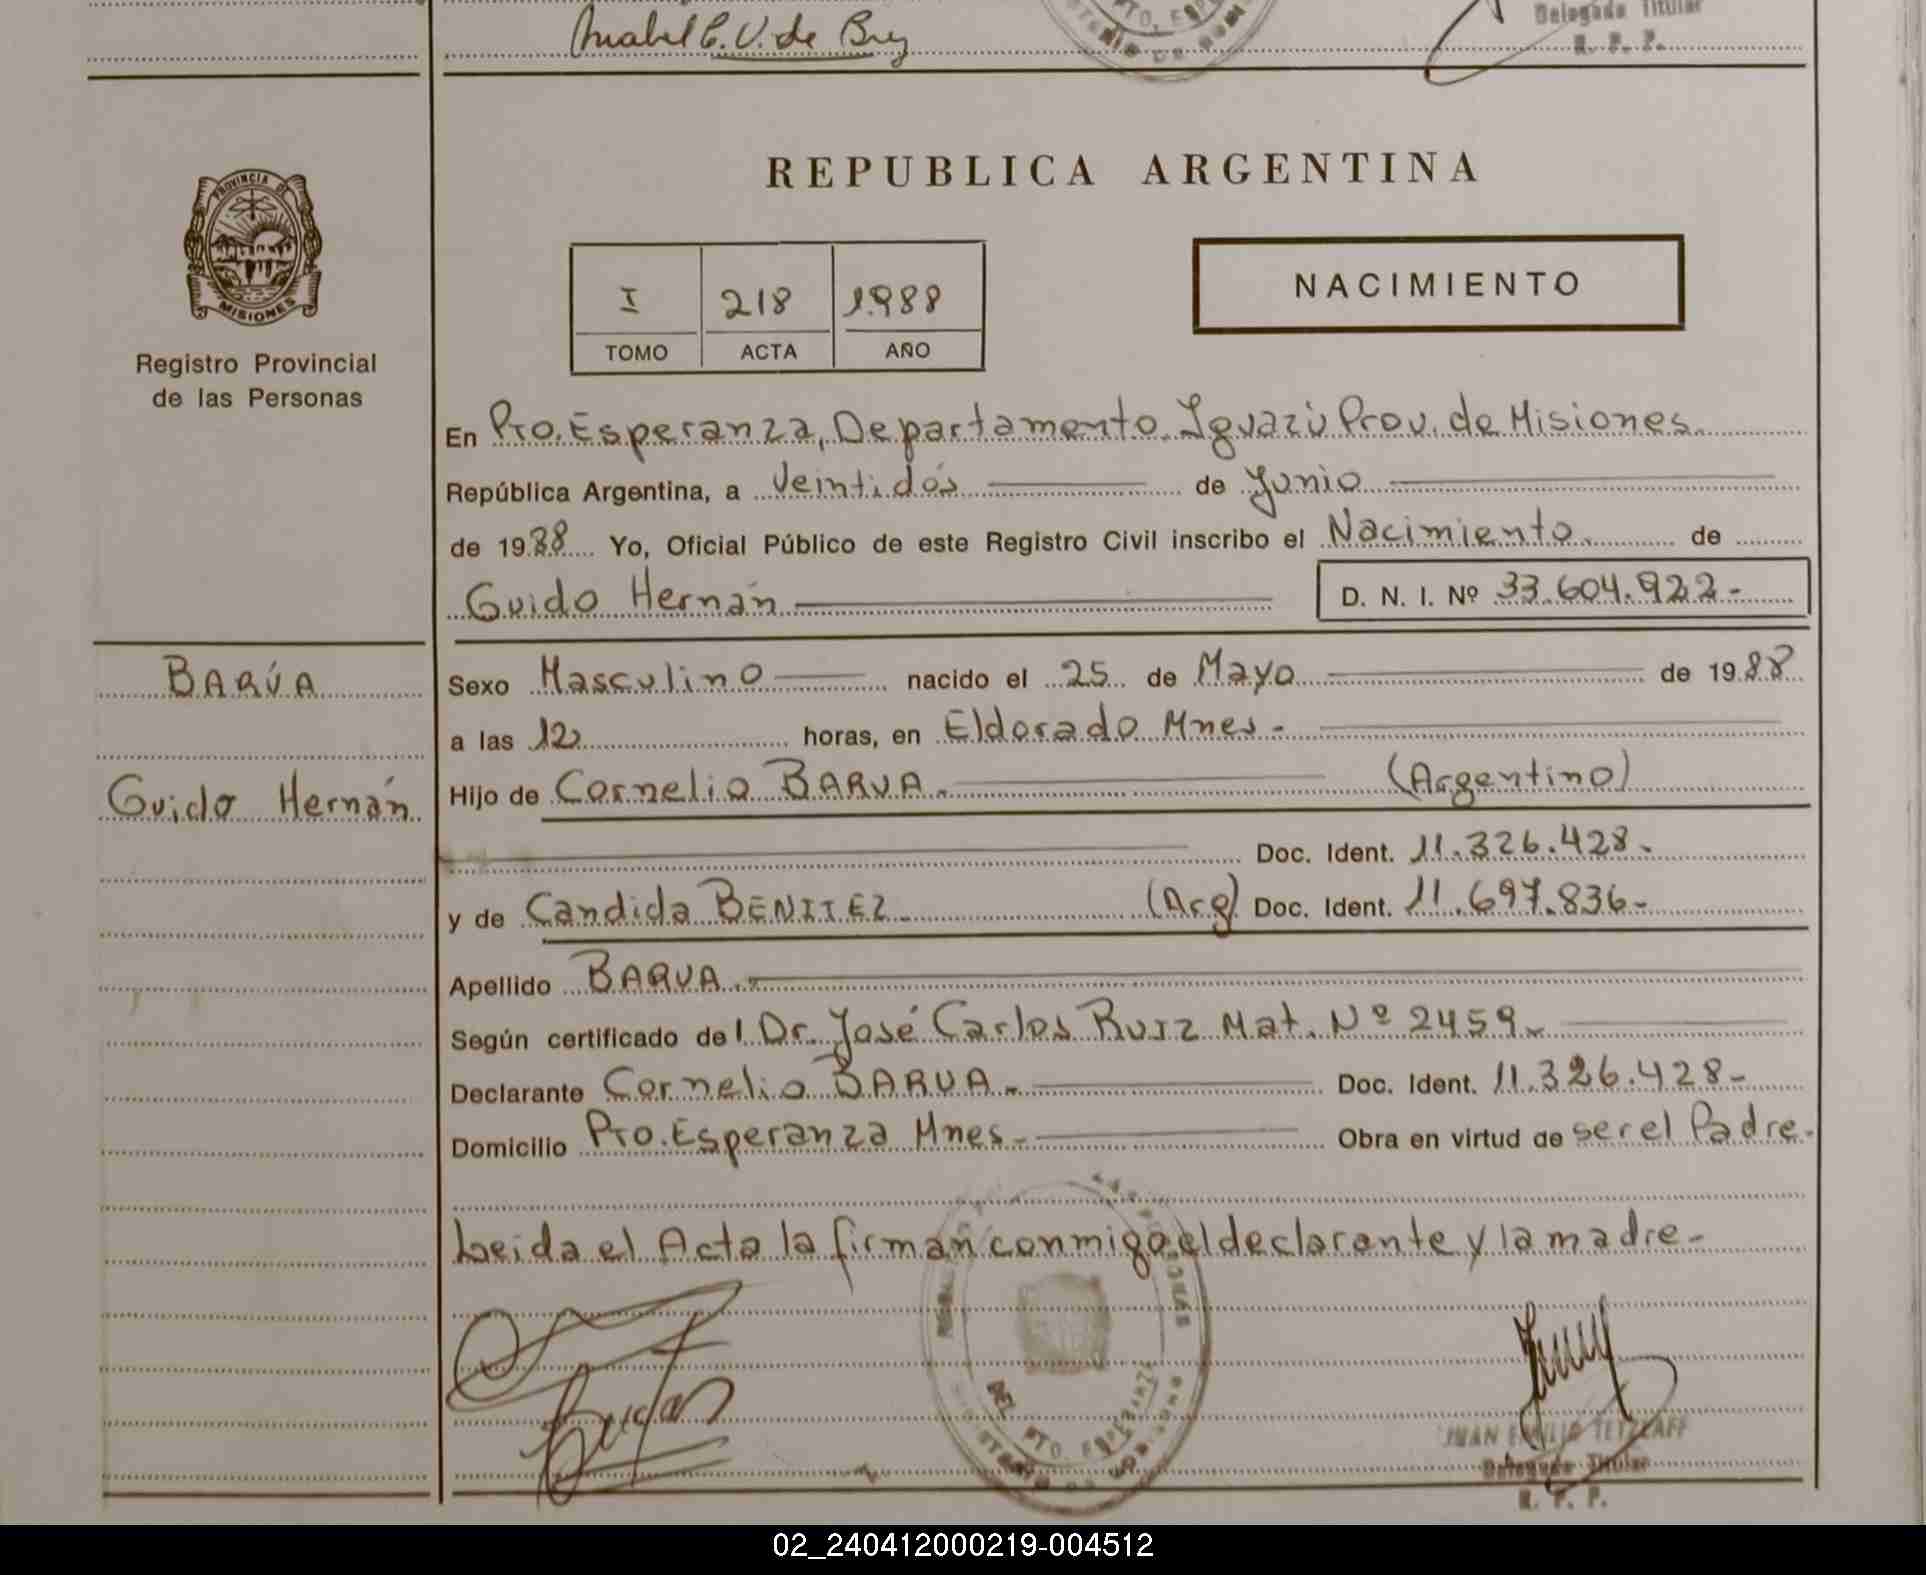 Delegado Titular
R. P. P.
REPUBLICA ARGENTINA
PROVINCIA DE
MISIONES
Registro Provincial
de las Personas
I 218 1.988
TOMO ACTA AÑO
NACIMIENTO
En Pto. Esperanza, Departamento Iguazú Prov. de Misiones
República Argentina, a Veintidós de Junio
de 1988 Yo, Oficial Público de este Registro Civil inscribo el Nacimiento de
Guido Hernán D. N. I. Nº 33.604.922-
BARÚA
Sexo Masculino nacido el 25 de Mayo de 1988
a las 12 horas, en Eldorado Mnes-
Guido Hernán
Hijo de Cornelio BARUA. (Argentino)
Doc. Ident. 11.326.428.
y de Candida BENITEZ (Arg) Doc. Ident. 11.697.836-
Apellido BARUA.
Según certificado del Dr. José Carlos Ruiz Mat. Nº 2459-
Declarante Cornelio BARUA- Doc. Ident. 11.326.428-
Domicilio Pto. Esperanza Mnes- Obra en virtud de ser el Padre.
Leida el Acta la firman conmigo el declarante y la madre-
DEL PTO. ESPERANZA
JUAN EMILIO TETZLAFF
Delegado Titular
R. P. P.
02_240412000219-004512